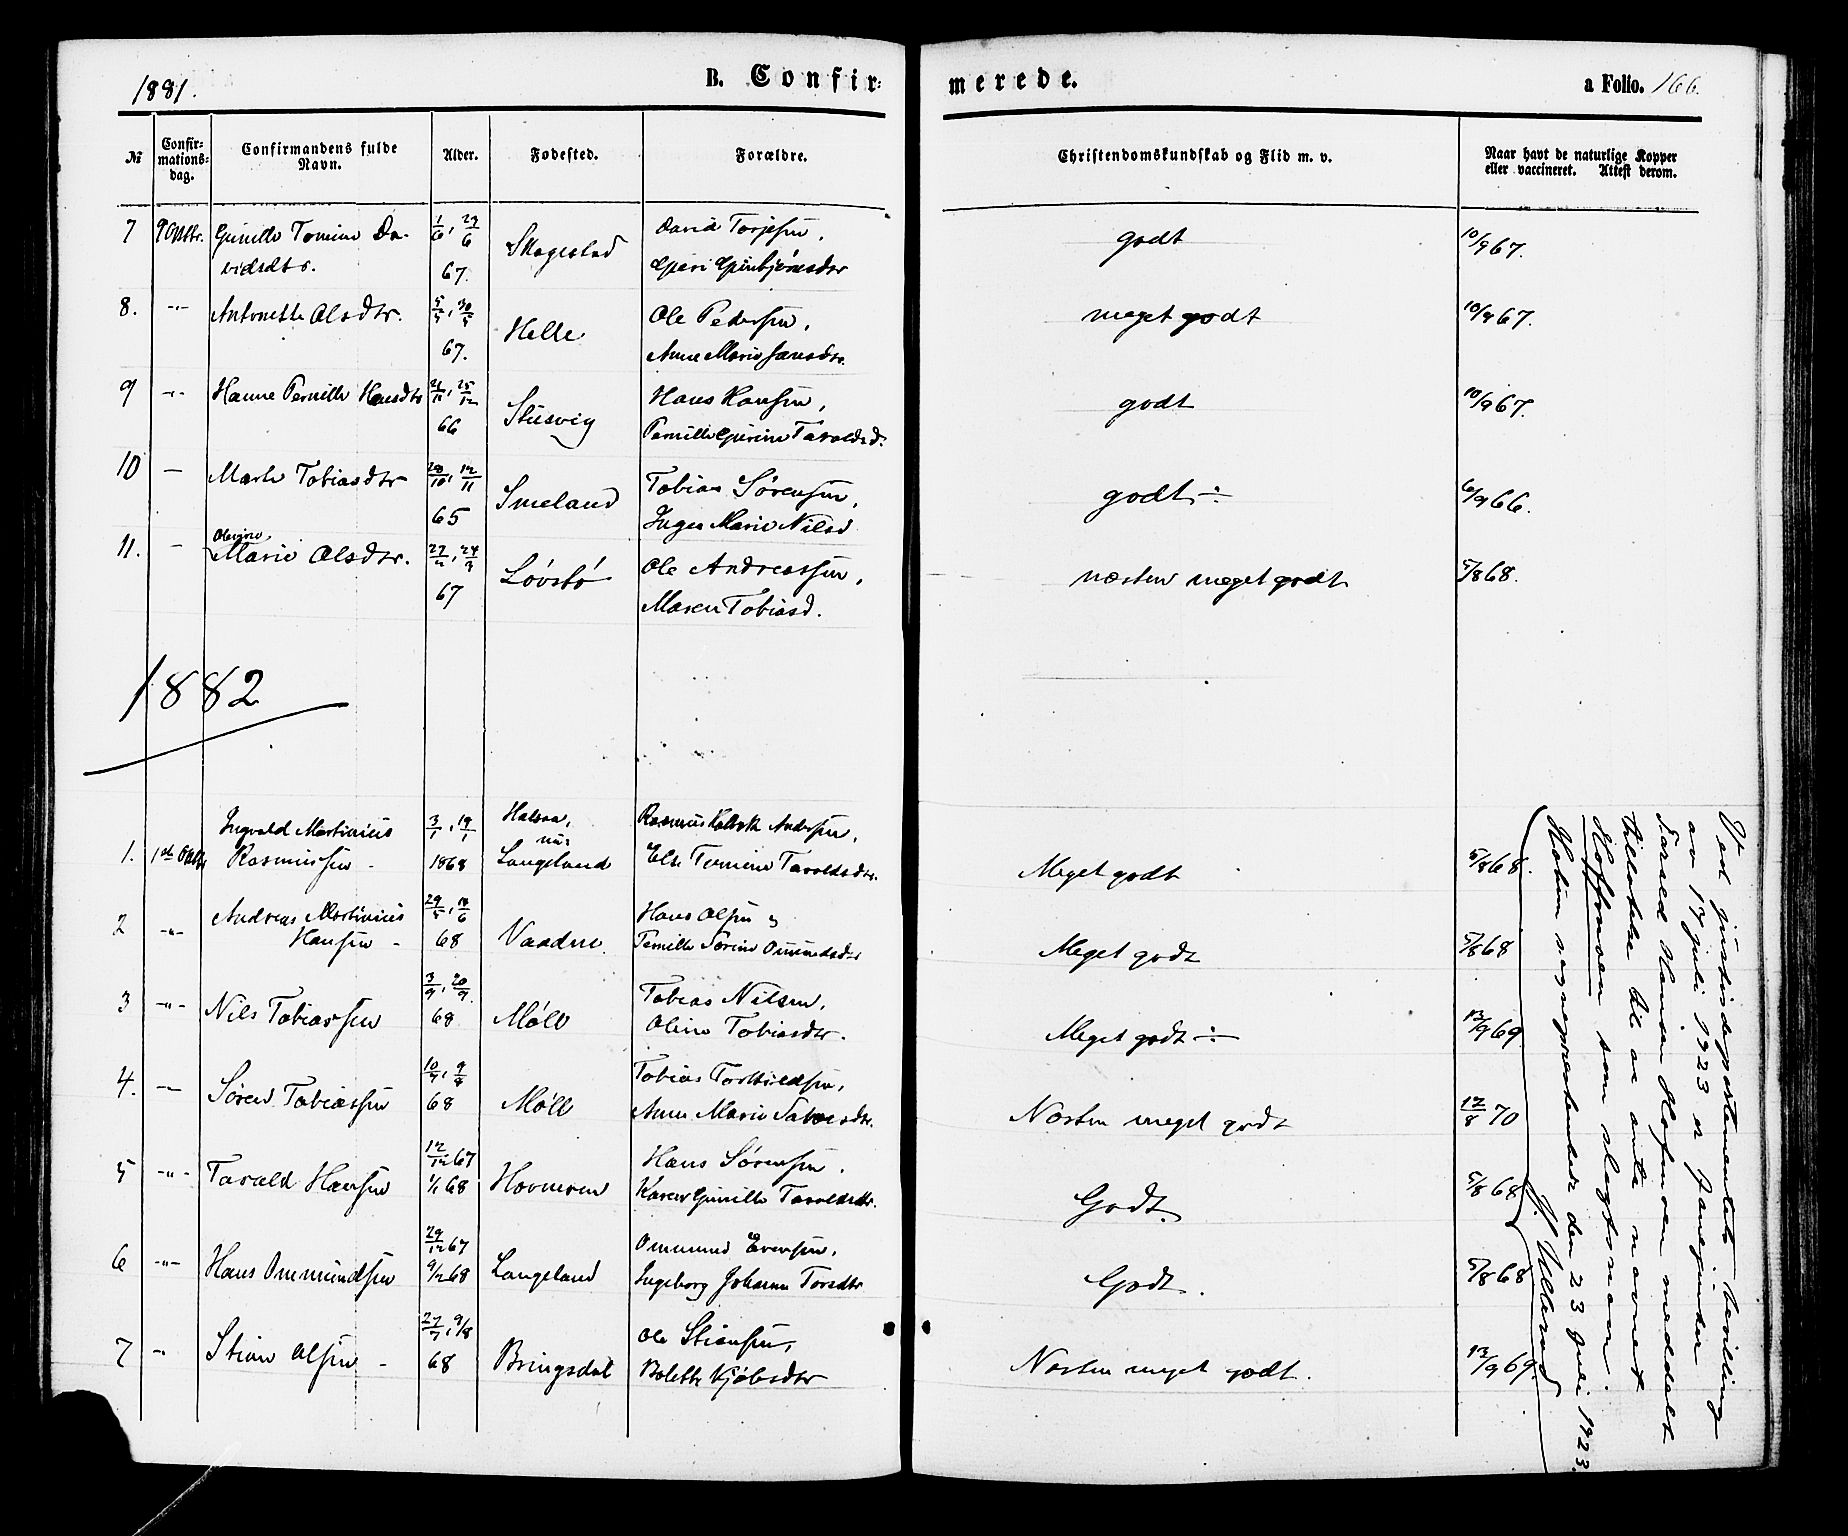 1881.
B. Confir-
merede.
a Folio. 166.
№
Confir-
mations-
dag.
Confirmandens fulde
Navn.
Alder.
Fødested.
Forældre.
Christendomskundskab og Flid m. v.
Naar havt de naturlige Kopper
eller vaccineret. Attest derom.
7 9 Oktbr. Gunille Tomine Da- 1/6, 23/6 David Torjesen,
vidsdtr. 67. Skogestad godt 10/9 67.
8. -"- Antonette Olsdtr. 5/5, 30/5 Ole Pedersen,
67. Helle Anne Marie Jansdtr. meget godt 10/9 67.
9 -"- Hanne Pernille Hansdtr 21/11, 25/12 Hans Hansen,
66 Stusvig Pernille Gurine Taraldsd. godt 10/9 67.
10 — Marte Tobiasdtr 28/10, 12/11 Tobias Sørensen,
65 Smeland Inger Marie Nilsd godt ÷ 6/9 66.
11. - Olevine
Marie Olsdtr. 27/2, 24/3 Ole Andreassen,
67 Løvstø Maren Tobiasd. næsten meget godt 5/8 68.
1882
Ingvald Martinius 3/1, 19/1 Halsaa, Rasmus Andersen,
1. 1ste Oktbr Rasmussen - 1868 nu: Langeland Else Tomine Taraldsdtr. Meget godt 5/8 68.
Andreas Martinius 29/5, 18/6 Hans Olsen,
2 -"- Hansen - 68 Vaadne Pernille Sørine Omundsdtr Meget godt 5/8 68
3 -"- Nils Tobiassen 3/9, 20/9. Tobias Nilsen,
68 Møll Oline Tobiasdtr. Meget godt ÷ 13/9 69
4. -"- Søren Tobiassen 10/7, 9/8 Tobias Torkildsen,
68 Møll Anne Marie Salvesdtr. Næsten meget godt 12/8 70
5 -"- Tarald Hansen 12/12 67 Hans Sørensen,
1/1 68 Hovneven Karen Gunille Taraldsdtr. Godt. 5/8 68
6 -"- Hans Ommundsen 29/12 67 Ommund Evensen,
9/2 68 Langeland Ingeborg Johanne Torsdtr Godt. 5/8 68
7 -"- Stian Olsen - 27/7, 9/8 Ole Stiansen,
68 Bringsdal Bolette Kjølsdtr Næsten meget godt. 13/9 69.
Ved justisdepartementets bevilling
av 17 juli 1923 er fanejunker
Tarald Hansen Hofnoven meddelt
tillatelse til at anta navnet
Hoffnoven som slegtsnavn.
Holum sogneprestembede den 23 juli 1923.